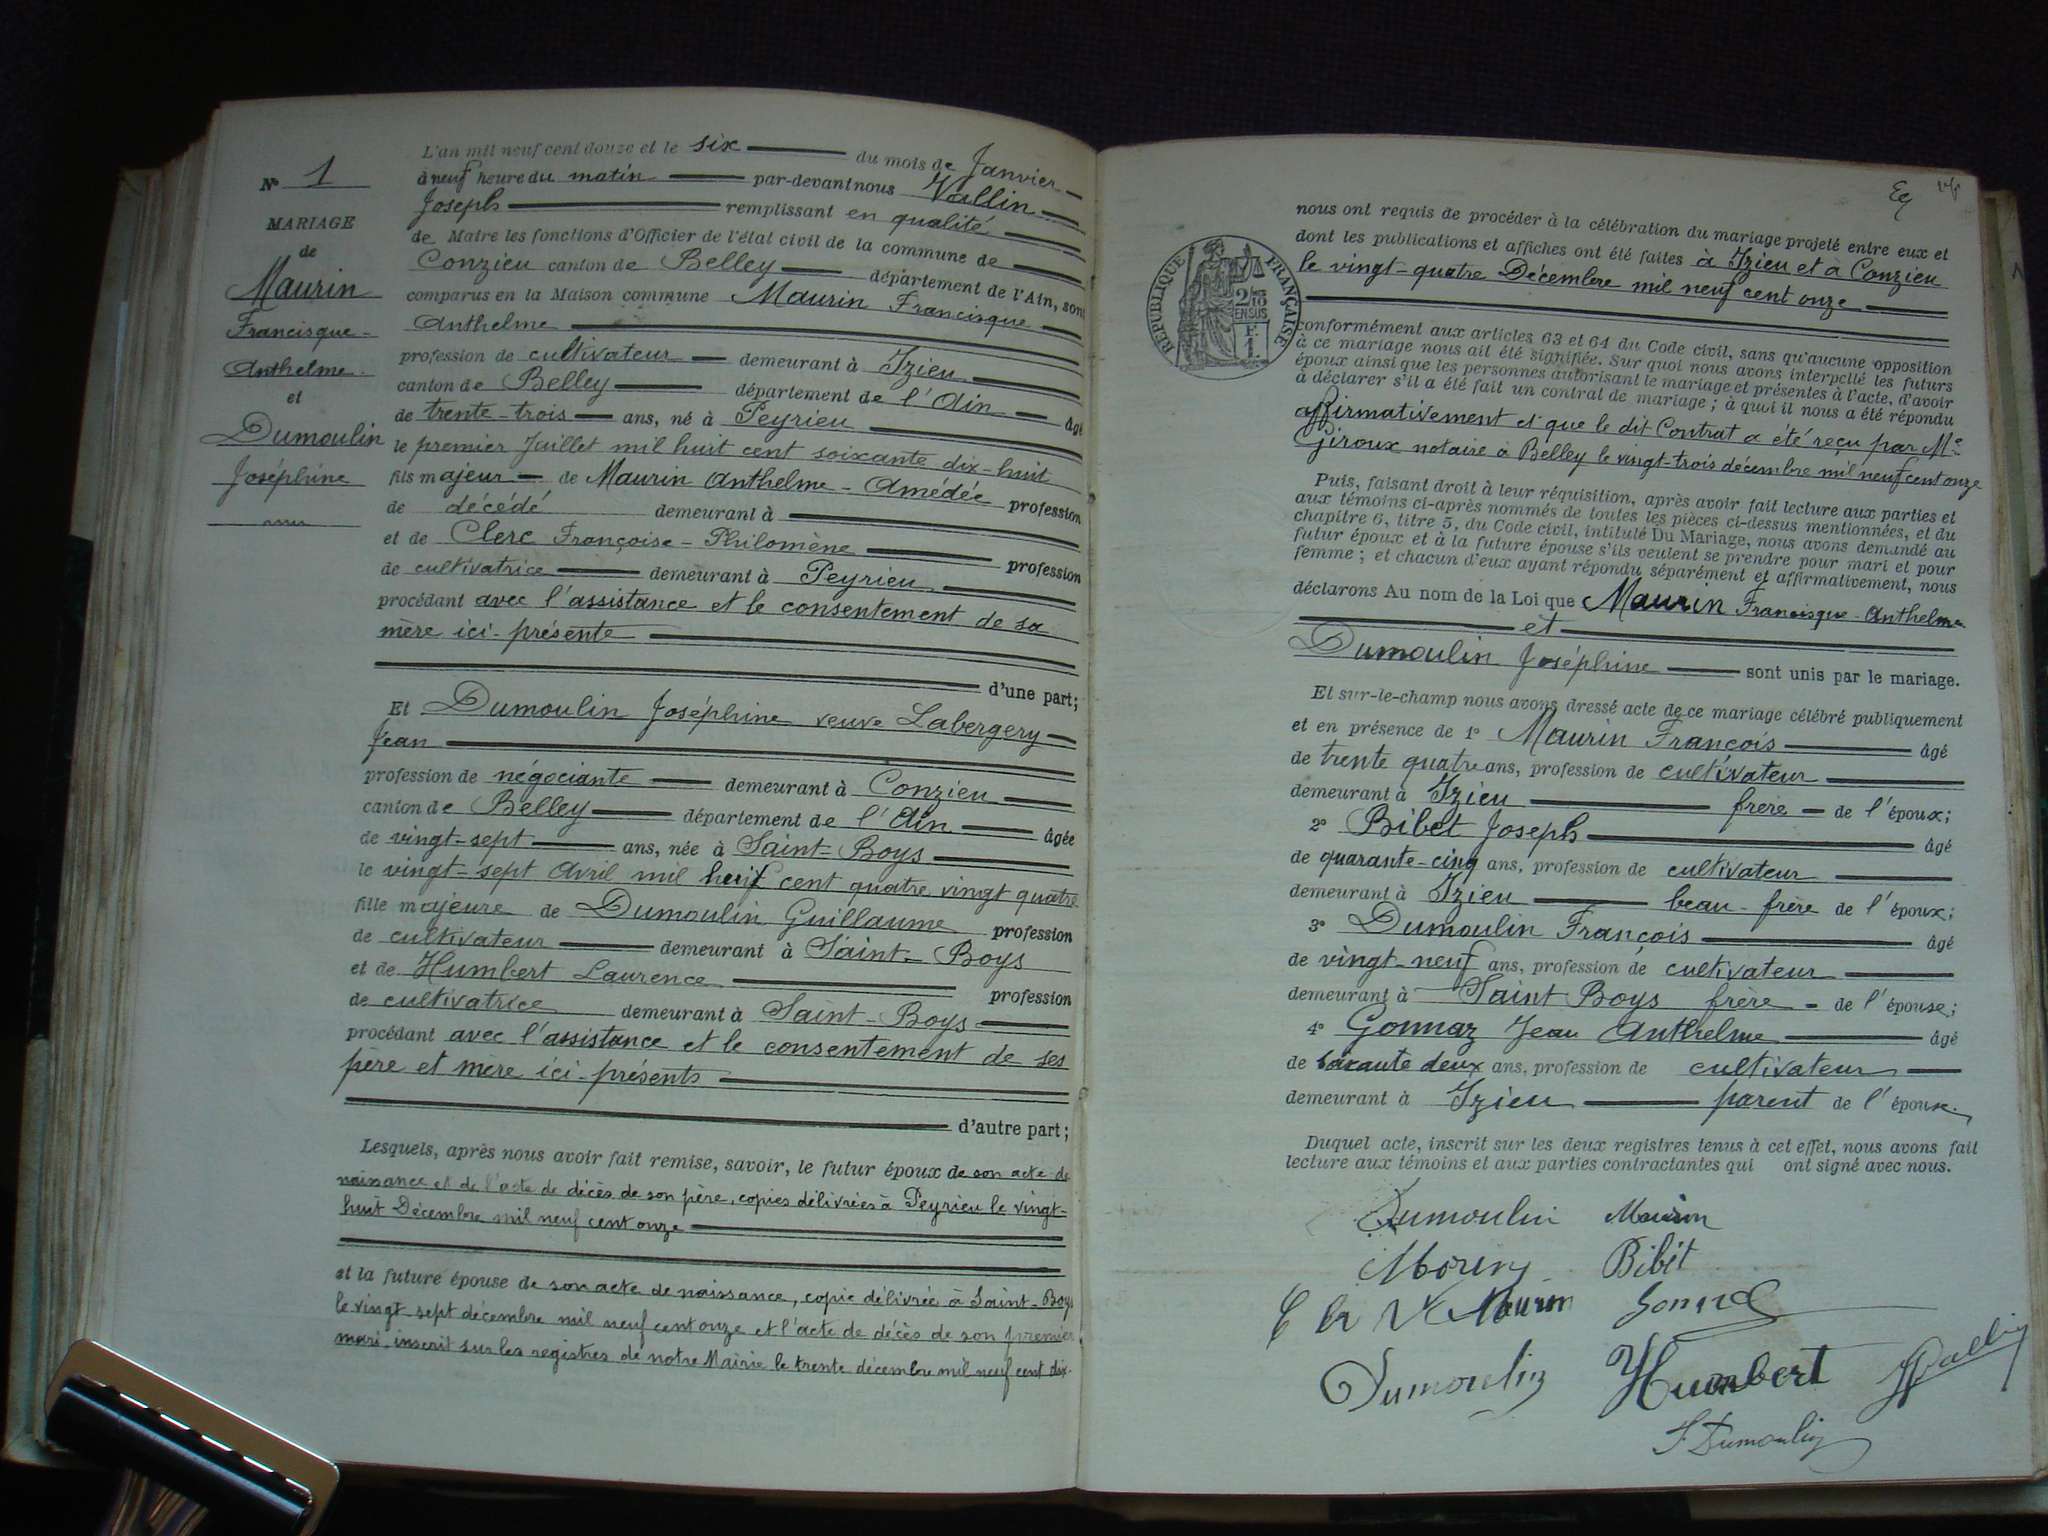 N° 1
MARIAGE
de
Maurin
Francisque
Anthelme
et
Dumoulin
Joséphine
L'an mil neuf cent douze et le six du mois de Janvier
à neuf heure du matin par-devant nous Vallin
Joseph remplissant en qualité
de Maire les fonctions d'Officier de l'état civil de la commune de
Conzieu canton de Belley département de l'Ain, sont
comparus en la Maison commune Maurin Francisque
Anthelme
profession de cultivateur demeurant à Izieu
canton de Belley département de l'Ain âgé
de trente-trois ans, né à Peyrieu
le premier Juillet mil huit cent soixante dix-huit
fils majeur de Maurin Anthelme-Amédée profession
de décédé demeurant à
et de Clerc Françoise-Philomène profession
de cultivatrice demeurant à Peyrieu
procédant avec l'assistance et le consentement de sa
mère ici-présente
d'une part;
Et Dumoulin Joséphine veuve Labergery
Jean
profession de négociante demeurant à Conzieu
canton de Belley département de l'Ain âgée
de vingt-sept ans, née à Saint-Boys
le vingt-sept Avril mil huit cent quatre vingt quatre
fille majeure de Dumoulin Guillaume profession
de cultivateur demeurant à Saint-Boys
et de Humbert Laurence profession
de cultivatrice demeurant à Saint-Boys
procédant avec l'assistance et le consentement de ses
père et mère ici-présents
d'autre part;
Lesquels, après nous avoir fait remise, savoir, le futur époux de son acte de
naissance et de l'acte de décès de son père, copies délivrées à Peyrieu le vingt-
huit Décembre mil neuf cent onze
et la future épouse de son acte de naissance, copie délivrée à Saint-Boys
le vingt-sept décembre mil neuf cent onze et l'acte de décès de son premier
mari inscrit sur les registres de notre Mairie le trente décembre mil neuf cent dix.
RÉPUBLIQUE FRANÇAISE
2/10 EN SUS
nous ont requis de procéder à la célébration du mariage projeté entre eux et
dont les publications et affiches ont été faites à Izieu et à Conzieu
le vingt-quatre Décembre mil neuf cent onze
conformément aux articles 63 et 64 du Code civil, sans qu'aucune opposition
à ce mariage nous ait été signifiée. Sur quoi nous avons interpellé les futurs
époux ainsi que les personnes autorisant le mariage et présentes à l'acte, d'avoir
à déclarer s'il a été fait un contrat de mariage; à quoi il nous a été répondu
affirmativement et que le dit Contrat a été reçu par Me
Giroux notaire à Belley le vingt-trois décembre mil neuf cent onze
Puis, faisant droit à leur réquisition, après avoir fait lecture aux parties et
aux témoins ci-après nommés de toutes les pièces ci-dessus mentionnées, et du
chapitre 6, titre 5, du Code civil, intitulé Du Mariage, nous avons demandé au
futur époux et à la future épouse s'ils veulent se prendre pour mari et pour
femme; et chacun d'eux ayant répondu séparément et affirmativement, nous
déclarons Au nom de la Loi que Maurin Francisque-Anthelme
et
Dumoulin Joséphine sont unis par le mariage.
Et sur-le-champ nous avons dressé acte de ce mariage célébré publiquement
et en présence de 1° Maurin François âgé
de trente quatre ans, profession de cultivateur
demeurant à Izieu frère de l'époux;
2° Bibet Joseph âgé
de quarante-cinq ans, profession de cultivateur
demeurant à Izieu beau-frère de l'époux;
3° Dumoulin François âgé
de vingt-neuf ans, profession de cultivateur
demeurant à Saint Boys frère de l'épouse;
4° Gonnaz Jean Anthelme âgé
de soixante deux ans, profession de cultivateur
demeurant à Izieu parent de l'épouse.
Duquel acte, inscrit sur les deux registres tenus à cet effet, nous avons fait
lecture aux témoins et aux parties contractantes qui ont signé avec nous.
Dumoulin Maurin
Bibet
Maurin
Dumoulin Humbert
Vallin
F. Dumoulin